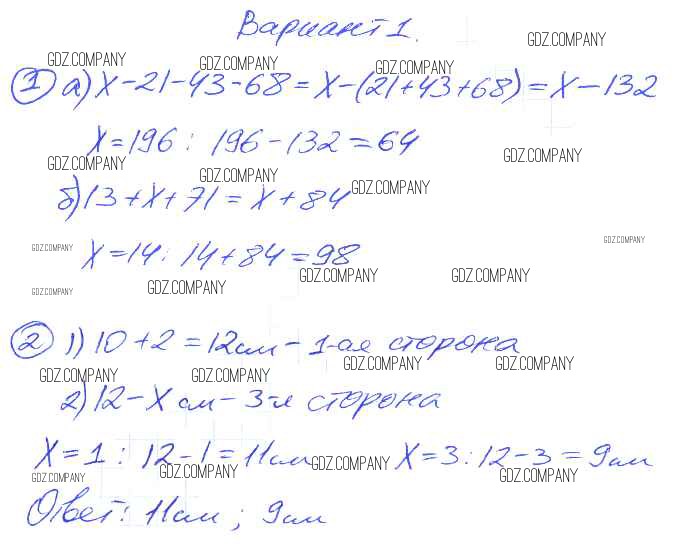 Вариант 1.
GDZ.COMPANY GDZ.COMPANY GDZ.COMPANY GDZ.COMPANY
① а) x-21-43-68=x-(21+43+68)=x-132
x=196: 196-132=64
GDZ.COMPANY GDZ.COMPANY GDZ.COMPANY GDZ.COMPANY
б) 13+x+71=x+84
x=14: 14+84=98
GDZ.COMPANY GDZ.COMPANY
GDZ.COMPANY GDZ.COMPANY GDZ.COMPANY GDZ.COMPANY
② 1) 10+2=12см - 1-ая сторона
GDZ.COMPANY GDZ.COMPANY GDZ.COMPANY GDZ.COMPANY
2) 12-x см - 3-я сторона
x=1: 12-1=11см x=3: 12-3=9см
GDZ.COMPANY GDZ.COMPANY GDZ.COMPANY GDZ.COMPANY
Ответ: 11см; 9см